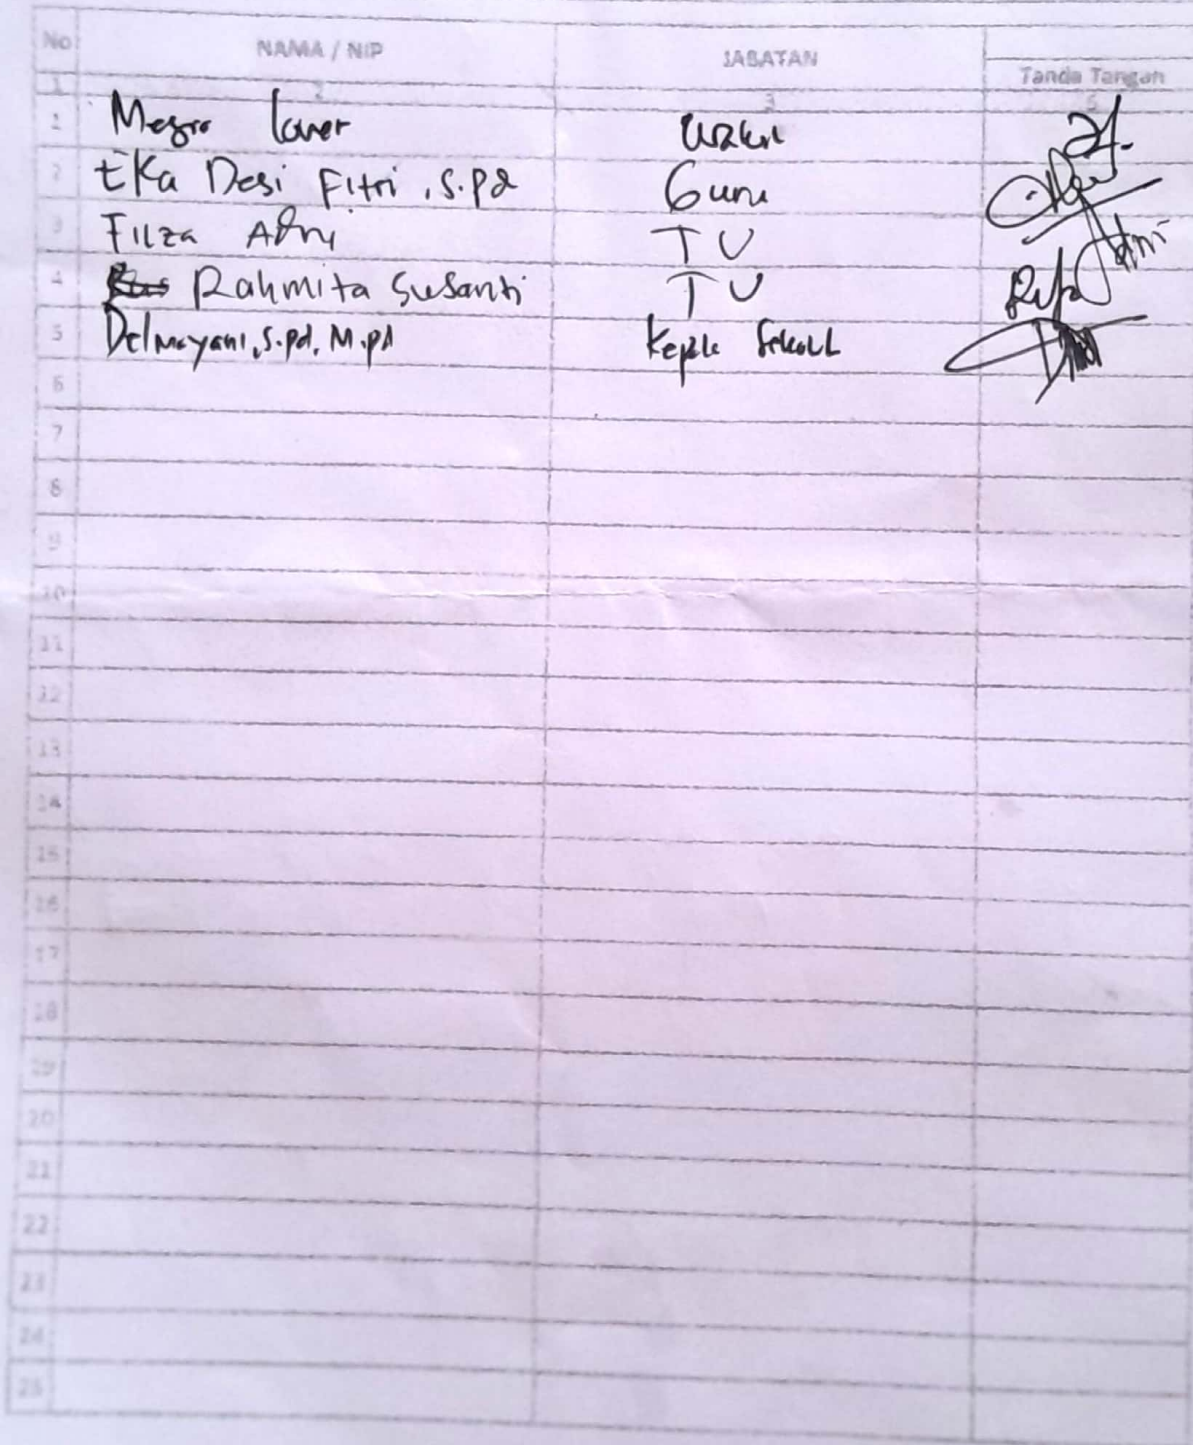 No NAMA / NIP JABATAN Tanda Tangan
1 2 3 5
1 Megro
2 Eka Desi Fitri, S.Pd Guru
3 Filza Adni TU Adni
4 Rahmita Susanti TU
5 Delmayani, S.pd, M.pd Kepala Sekolah
6
7
8
9
10
11
12
13
14
15
16
17
18
19
20
21
22
23
24
25